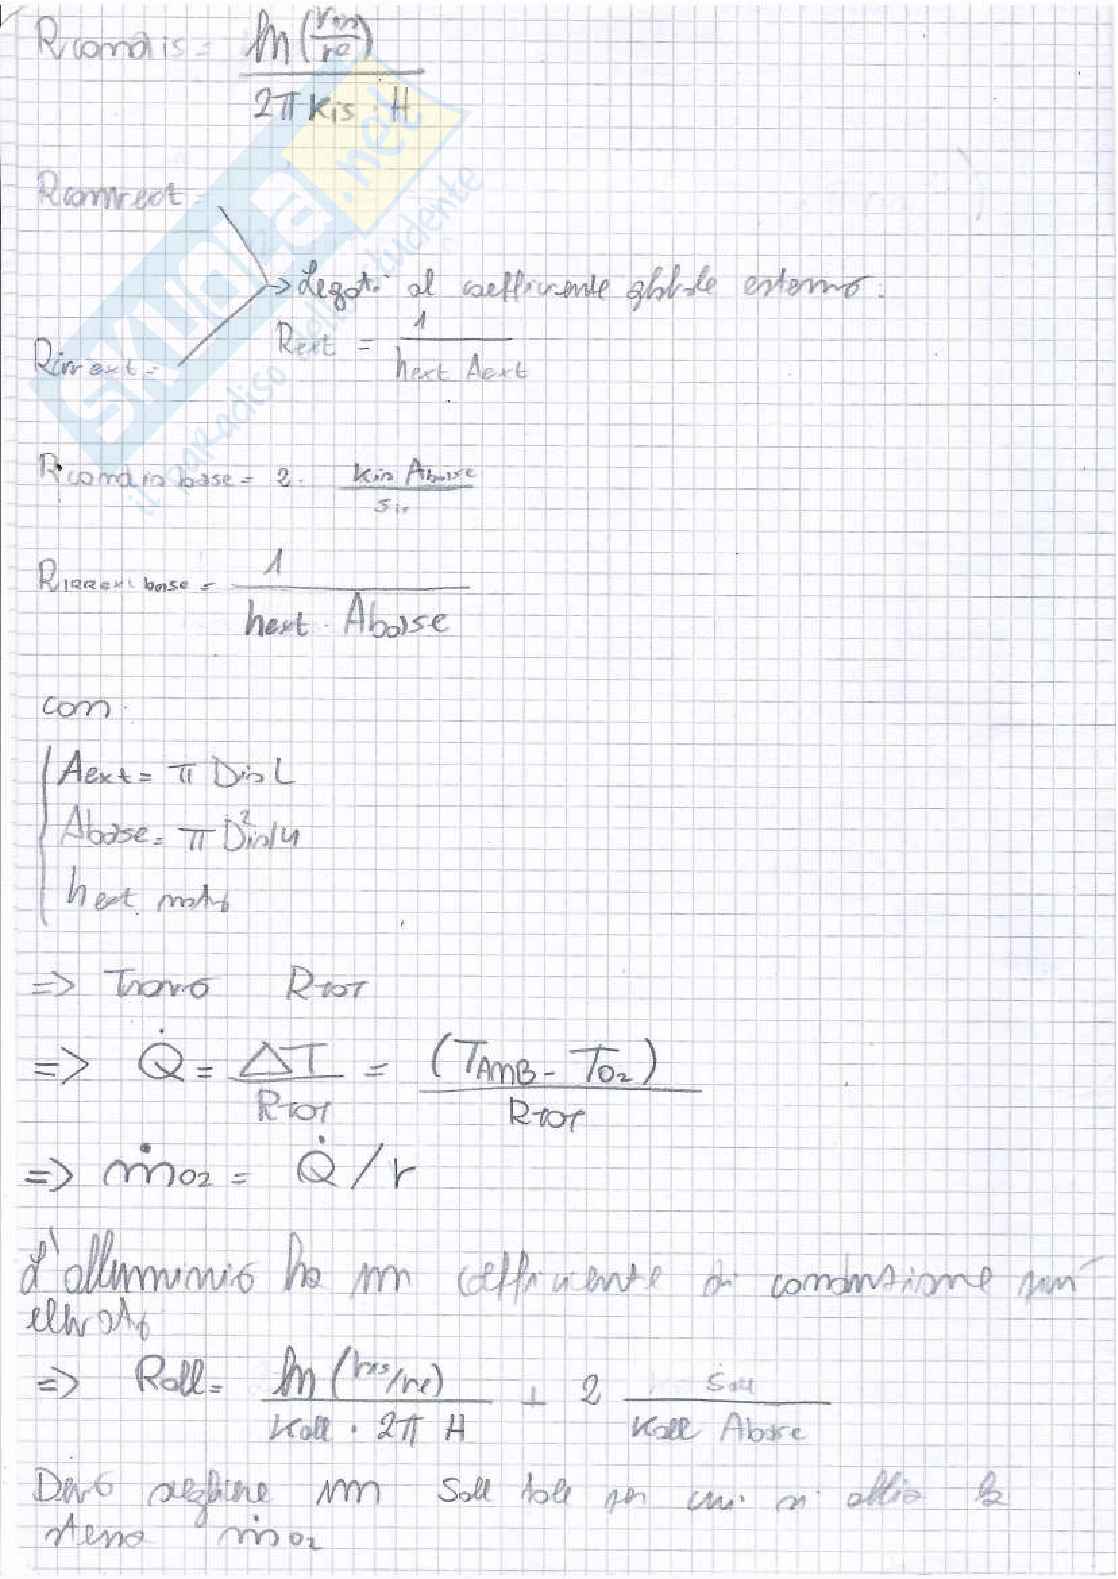 Rcond is = ln(ris/re) / 2π Kis · H
Rconv ext =
→ Legati al coefficiente globale esterno.
Rext = 1 / hext Aext
Rirr ext =
Rcond is base = 2 · Kis Abase / sis
RIRR ext base = 1 / hext · Abase
con:
Aext = π Dis L
Abase = π Dis²/4
hext noto
=> Trovo RTOT
=> Q̇ = ΔT / RTOT = (TAMB - TO2) / RTOT
=> ṁO2 = Q̇ / r
L'alluminio ha un coefficiente di conduzione più
elevato
=> Rall = ln(ris/re) / Kall · 2π H + 2 sall / Kall Abase
Devo scegliere un sall tale per cui si abbia lo
stesso ṁO2
SKUOLA.net
il paradiso dello studente